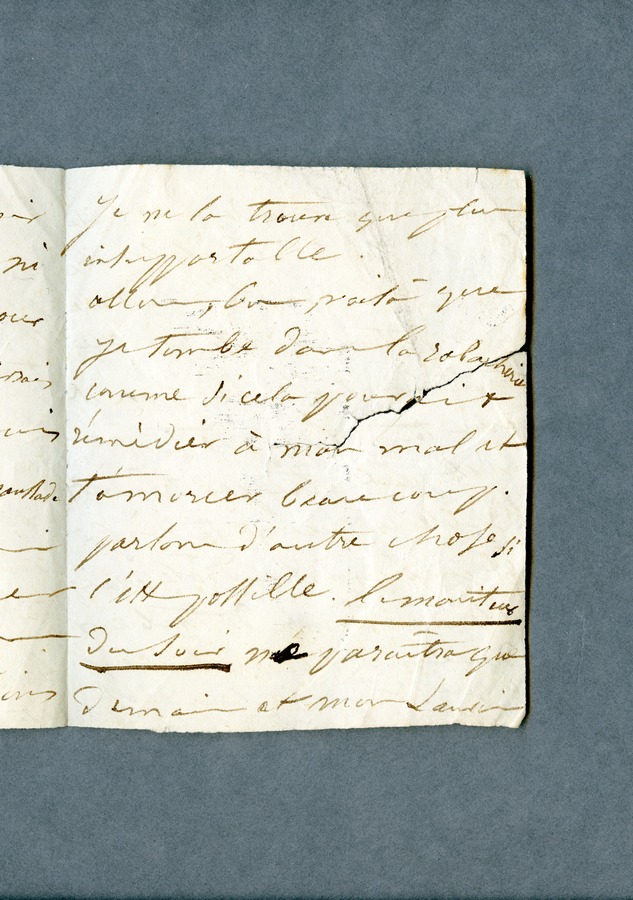 je ne la trouve que plus
insupportable.
allons, bon voilà que
je tombe dans la rabacherie
comme si cela pourrait
rémédier à mon mal et
t'amorcer beaucoup.
parlons d'autre chose si
c'est possible. le moniteur
du Soir ne paraîtra que
demain et mon